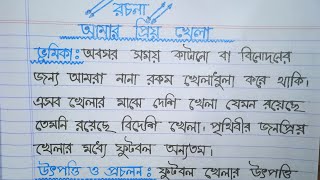 রচনা
আমার প্রিয় খেলা
ভূমিকা: অবসর সময় কাটানো বা বিনোদনের
জন্য আমরা নানা রকম খেলাধুলা করে থাকি।
এসব খেলার মাঝে দেশি খেলা যেমন রয়েছে
তেমনি রয়েছে বিদেশি খেলা। পৃথিবীর জনপ্রিয়
খেলার মধ্যে ফুটবল অন্যতম।
উৎপত্তি ও প্রচলন: ফুটবল খেলার উৎপত্তি